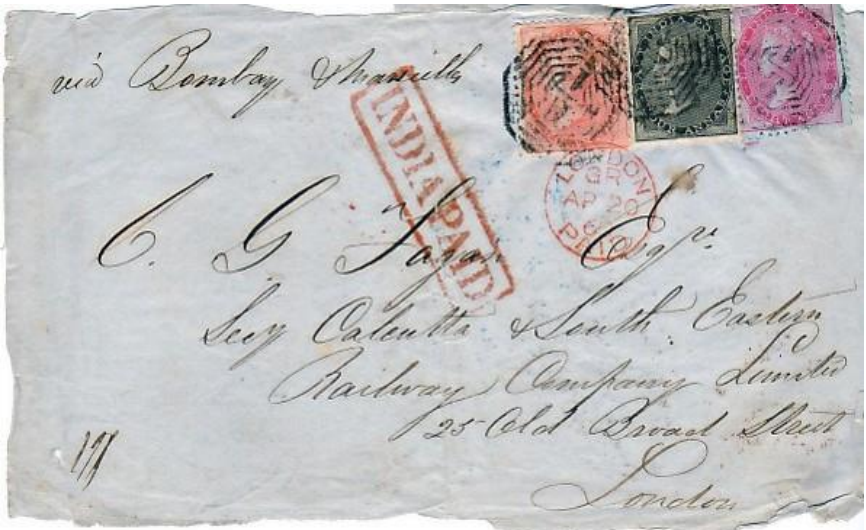 via Bombay & Marseilles
INDIA PAID
LONDON
GR
AP 20
6
PAID
C. G. Esqre.
Secy Calcutta & South Eastern
Railway Company Limited
25 Old Broad Street
London